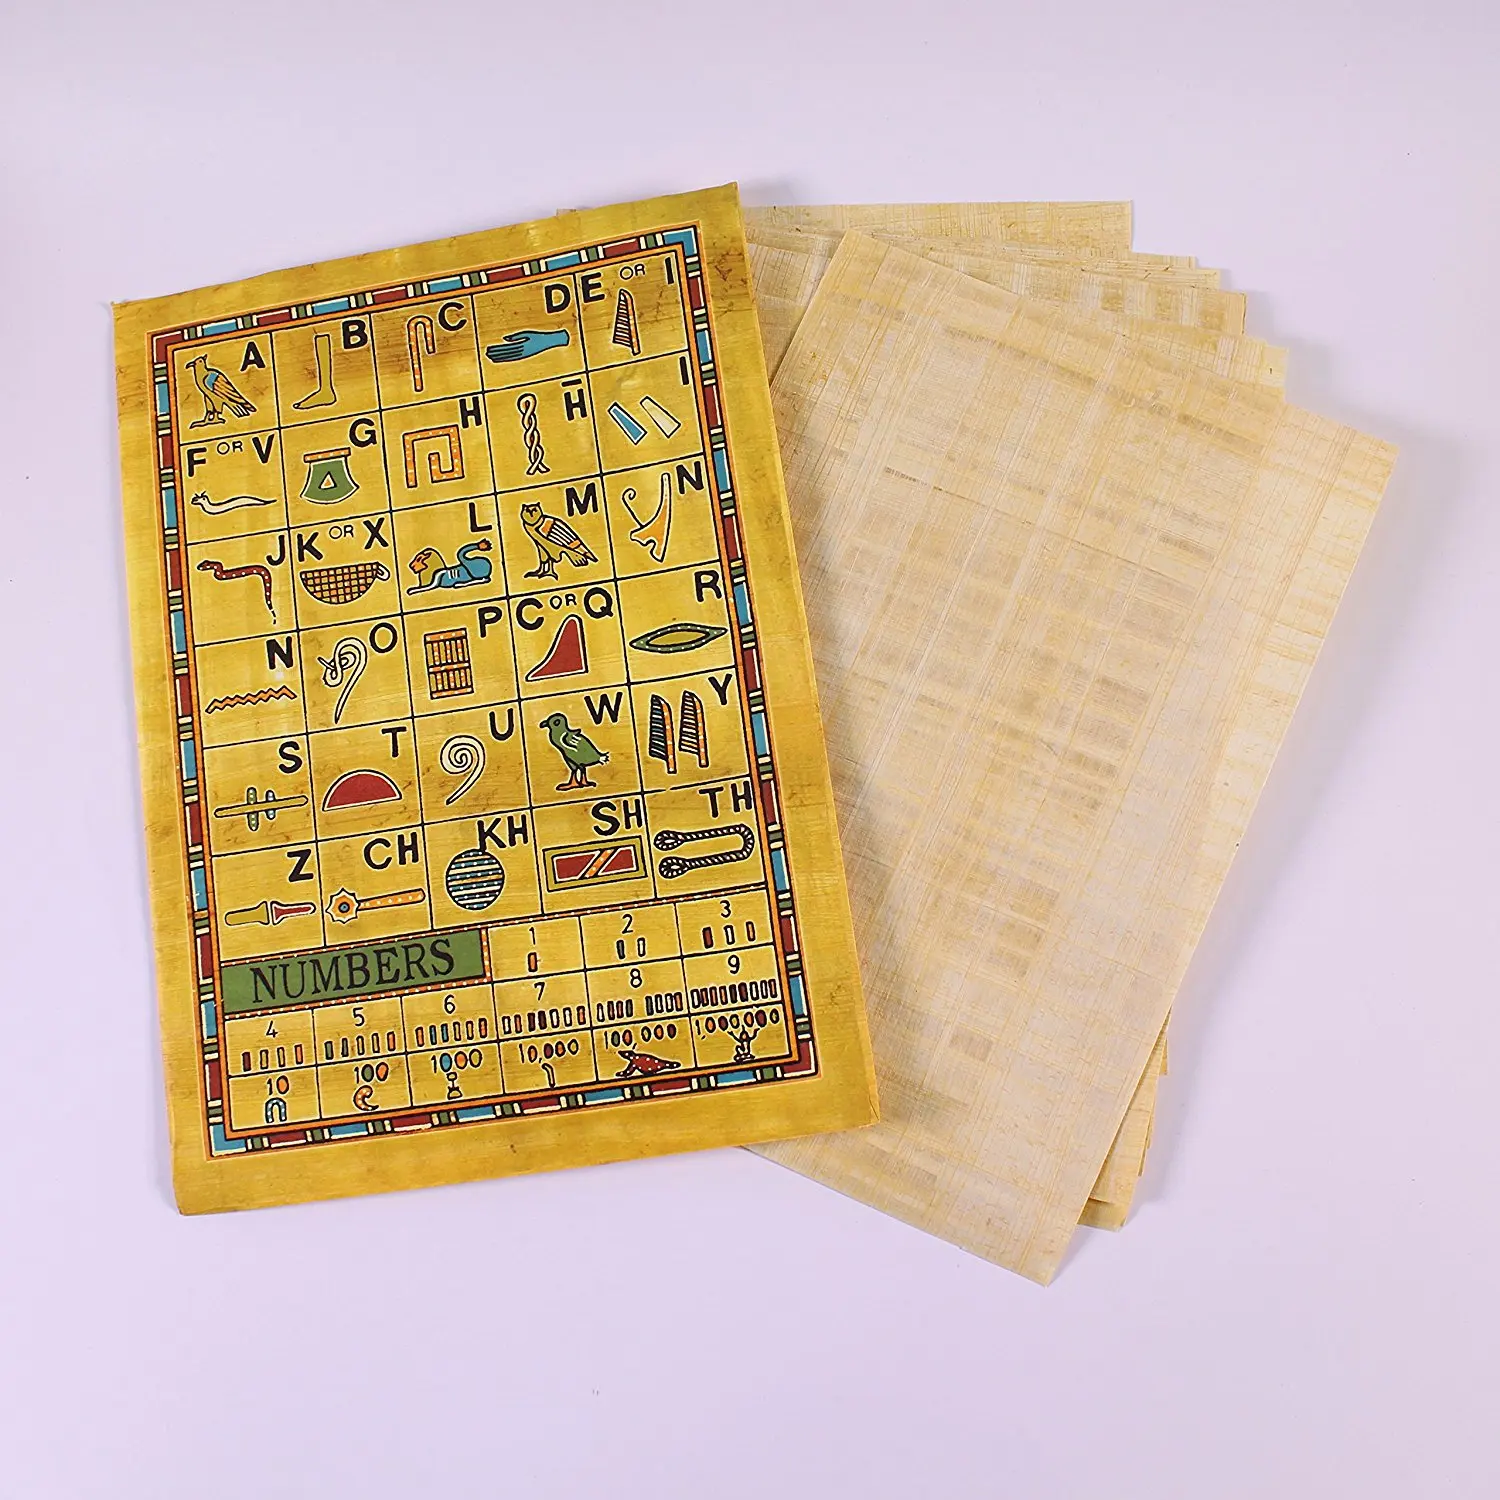 A B C D E OR I
F OR V G H H̄ I
J K OR X L M N
N O P C OR Q R
S T U W Y
Z CH KH SH TH
NUMBERS 1 2 3
4 5 6 7 8 9
10 100 1000 10,000 100,000 1,000,000